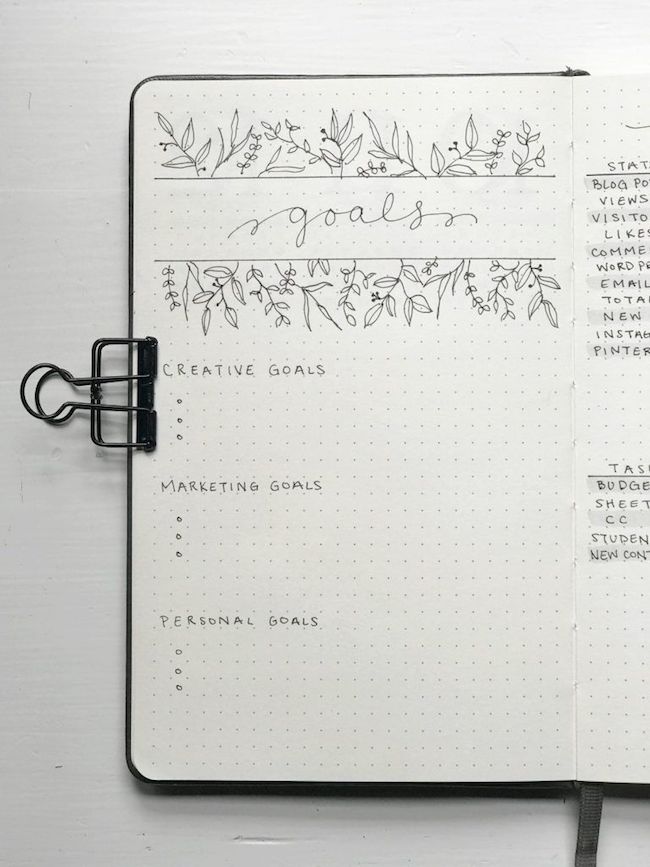 goals
CREATIVE GOALS
MARKETING GOALS
PERSONAL GOALS
STAT
BLOG PO
VIEWS
VISITO
LIKES
COMME
WORDPR
EMAIL
TOTAL
NEW
INSTAG
PINTER
TAS
BUDGE
SHEET
CC
STUDEN
NEW CONT